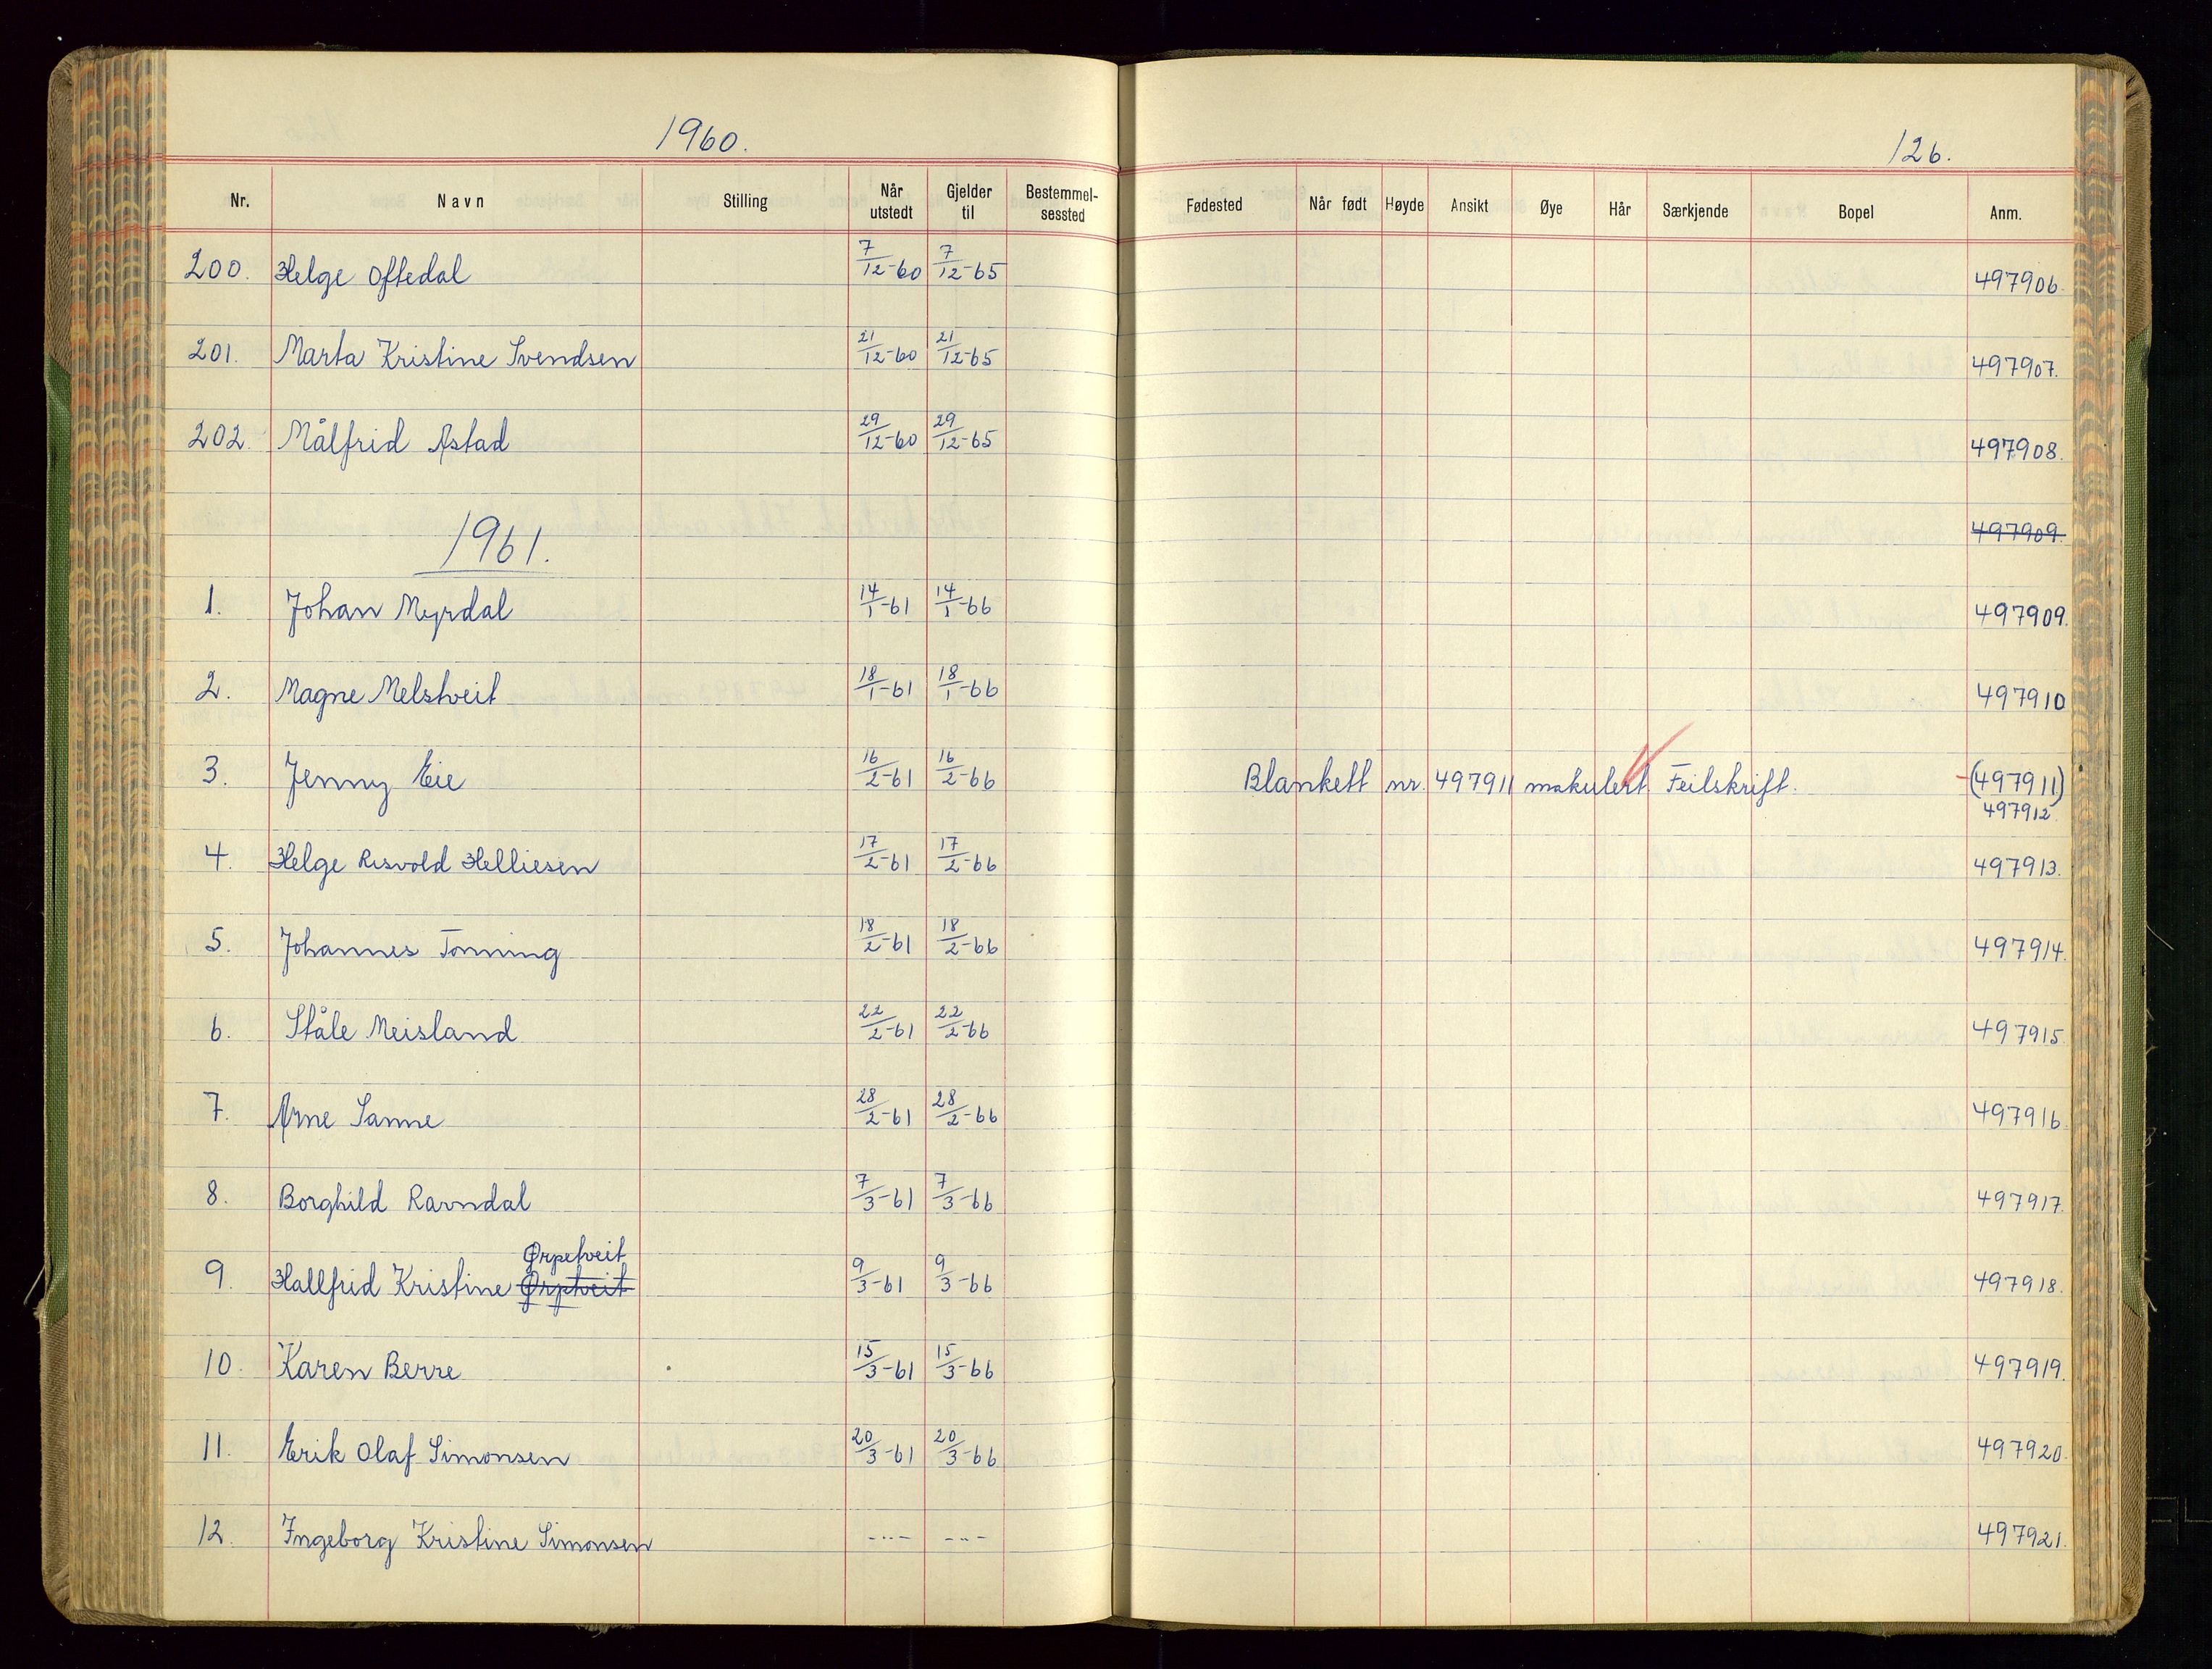 1960.
126.
Nr. Navn Stilling Når utstedt Gjelder til Bestemmel-sessted Fødested Når født Høyde Ansikt Øye Hår Særkjende Bopel Anm.
200. Helge Oftedal 7/12-60 7/12-65 497906.
201. Marta Kristine Svendsen 21/12-60 21/12-65 497907.
202. Målfrid Åstad 29/12-60 29/12-65 497908.
497909.
1961.
1. Johan Myrdal 14/1-61 14/1-66 497909.
2. Magne Melstveit 18/1-61 18/1-66 497910
3. Jenny Eie 16/2-61 16/2-66 Blankett nr. 497911 makulert Feilskrift. (497911)
497912
4. Helge Risvold Helliesen 17/2-61 17/2-66 497913.
5. Johannes Tonning 18/2-61 18/2-66 497914.
6. Ståle Meisland 22/2-61 22/2-66 497915.
7. Arne Sanne 28/2-61 28/2-66 497916.
8. Borghild Ravndal 7/3-61 7/3-66 497917.
Ørpetveit
9. Hallfrid Kristine Ørptveit 9/3-61 9/3-66 497918.
10. Karen Berre 15/3-61 15/3-66 497919.
11. Erik Olaf Simonsen 20/3-61 20/3-66 497920.
12. Ingeborg Kristine Simonsen -"- -"- 497921.